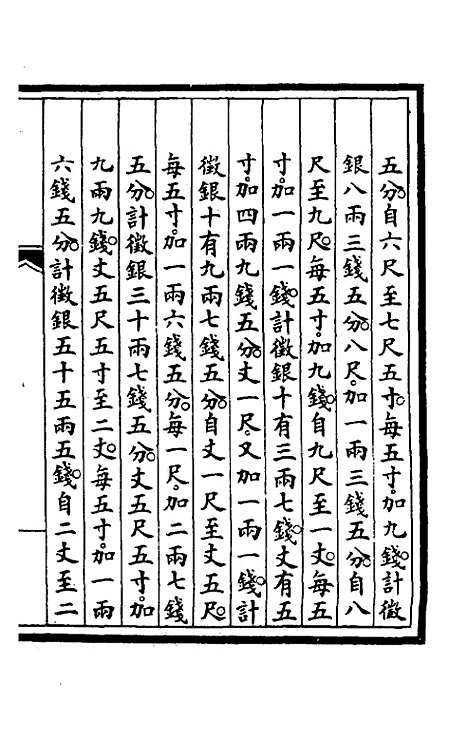 五分。自六尺至七尺五寸。每五寸。加九錢。計徵
銀八兩三錢五分。八尺。加一兩三錢五分。自八
尺至九尺。每五寸。加九錢。自九尺至一丈。每五
寸。加一兩一錢。計徵銀十有三兩七錢。丈有五
寸。加四兩九錢五分。丈一尺。又加一兩一錢。計
徵銀十有九兩七錢五分。自丈一尺至丈五尺。
每五寸。加一兩六錢五分。每一尺。加二兩七錢
五分。計徵銀三十兩七錢五分。丈五尺五寸。加
九兩九錢。丈五尺五寸至二丈。每五寸。加一兩
六錢五分。計徵銀五十五兩五錢。自二丈至二